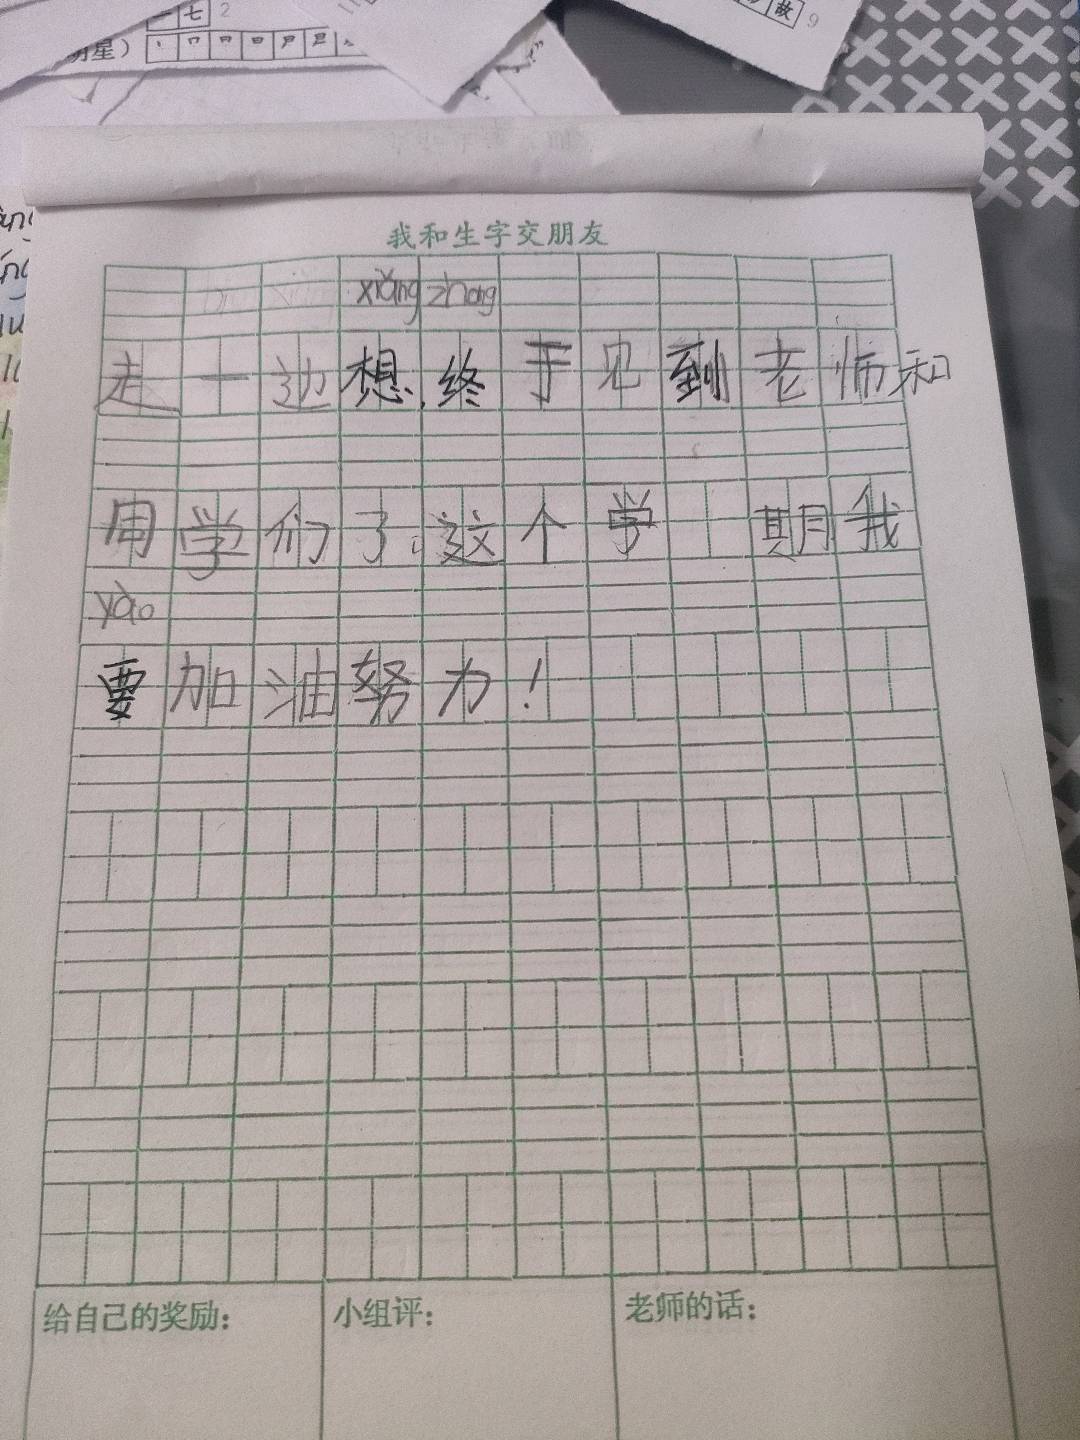 七 2
明星）
故 9
我和生字交朋友
xiǎng zhong
走一边想，终于见到老师和
同学们了。这个学期我
yào
要加油努力！
给自己的奖励：
小组评：
老师的话：